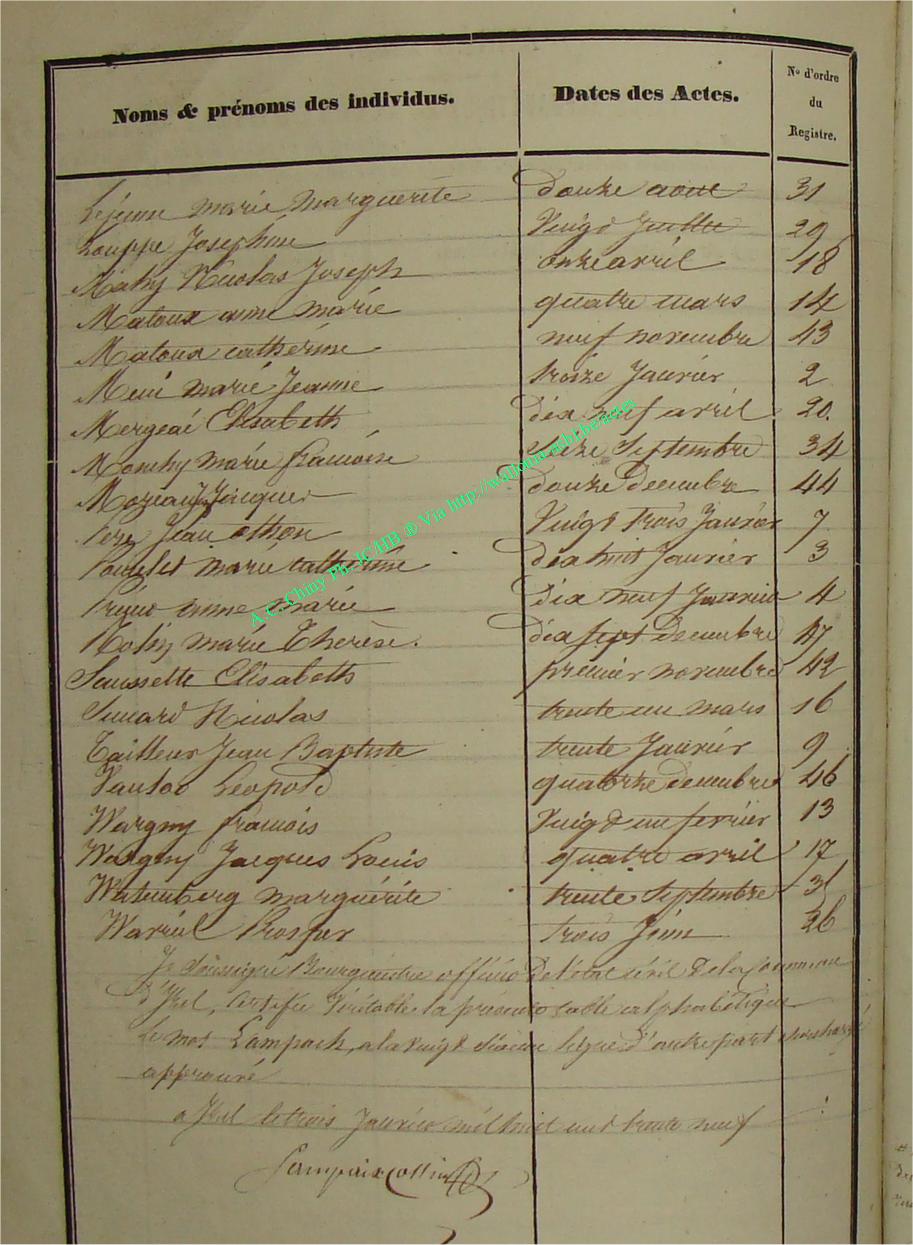 Noms & prénoms des individus. Dates des Actes. No d'ordre du Registre.
Lejeune marie marguerite douze aout 31
Louppe Josephine Vingt Juillet 29
Mahy Nicolas Joseph onze avril 18
Matoux anne marie quatre mars 14
Matoux catherine neuf novembre 43
marie Jeanne treize Janvier 2
Mergeai Elisabeth dix neuf avril 20.
Monchy marie francoise Septembre 34
Mozeau douze Decembre 44
Jean othon Vingt trois Janvier 7
marie Catherine dix huit Janvier 3
anne marie dix neuf Janvier 4
marie Therèse. dix sept decembre 47
Saussette Elisabeth premier novembre 42
Simard Nicolas trente un mars 16
Tailleur Jean Baptiste trente Janvier 9
Leopold quatorze decembre 46
Wargny francois Vingt un fevrier 13
Wargny Jacques Louis quatre avril 17
Watemberg marguérite trente Septembre 3
Prosper trois Juin 26
Je Soussigné Bourgmestre officier De l'état civil De la Commune
D'Izel, Certifie Véritable la presente table alphabétique
Le mot Lampach, a la Vingt Sixieme ligne D'autre part
approuvé
a Izel le trois Janvier mil huit cent trente neuf
Lampach Collin
A.C. Chiny Ph. JCHB ® Via http://wallonia.jchb.be/actes